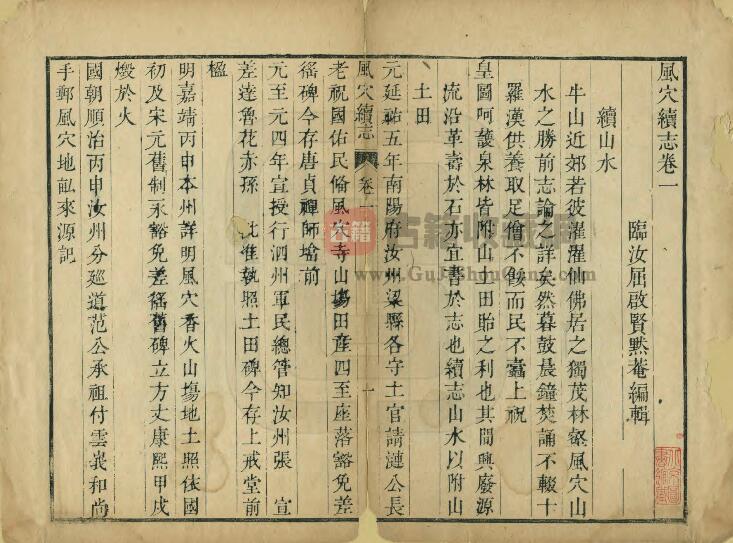 風穴續志卷一
臨汝屈啟賢默菴編輯
續山水
牛山近郊若彼濯濯仙佛居之獨茂林壑風穴山
水之勝前志論之詳矣然暮鼓晨鐘焚誦不輟十
羅漢供養取足僧不飢而民不蠹上祝
皇圖呵護泉林皆附山土田貽之利也其間興廢源
流沿革壽於石亦宜書於志也續志山水以附山
土田
元延祐五年南陽府汝州梁縣各守土官請漣公長
風穴續志 卷一 一
老祝國佑民脩風穴寺山塲田產四至座落豁免差
徭碑今存唐貞禪師塔前
元至元四年宣授行泗州軍民總管知汝州張 宣
差達魯花赤孫 比准執照土田碑今存上戒堂前
楹
明嘉靖丙申本州詳明風穴香火山塲地土照依國
初及宋元舊制永豁免差徭舊碑立方丈康熙甲戌
燬於火
國朝順治丙申汝州分廵道范公承祖付雲峩和尚
手郵風穴地畝來源記
古籍
www.GuJiShuCang.com